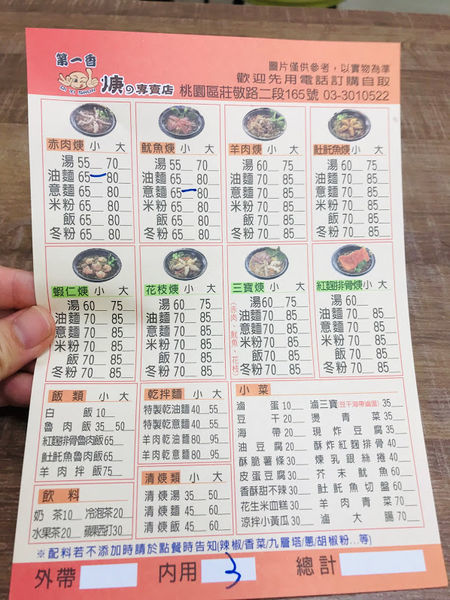 第一香
羹の專賣店
圖片僅供參考，以實物為準
歡迎先用電話訂購自取
桃園區莊敬路二段165號 03-3010522
赤肉焿 小 大
湯 55 70
油麵 65 80
意麵 65 80
米粉 65 80
飯 65 80
冬粉 65 80
魷魚焿 小 大
湯 55 70
油麵 65 80
意麵 65 80
米粉 65 80
飯 65 80
冬粉 65 80
羊肉焿 小 大
湯 60 75
油麵 70 85
意麵 70 85
米粉 70 85
飯 70 85
冬粉 70 85
𩵚魠魚焿 小 大
湯 60 75
油麵 70 85
意麵 70 85
米粉 70 85
飯 70 85
冬粉 70 85
蝦仁焿 小 大
湯 60 75
油麵 70 85
意麵 70 85
米粉 70 85
飯 70 85
冬粉 70 85
花枝焿 小 大
湯 60 75
油麵 70 85
意麵 70 85
米粉 70 85
飯 70 85
冬粉 70 85
三寶焿 小 大
(赤肉、魷魚、花枝)
湯 60 75
油麵 70 85
意麵 70 85
米粉 70 85
飯 70 85
冬粉 70 85
紅麴排骨焿 小 大
湯 60 75
油麵 70 85
意麵 70 85
米粉 70 85
飯 70 85
冬粉 70 85
飯類 小 大
白飯 10
魯肉飯 35 50
紅麴排骨魯肉飯 65
𩵚魠魚魯肉飯 65
羊肉拌飯 75
飲料
奶茶 10 冷泡茶 20
水果茶 20 蘋果西打 30
乾拌麵 小 大
特製乾油麵 40 55
特製乾意麵 40 55
羊肉乾油麵 80 95
羊肉乾意麵 80 95
清焿類 小 大
清焿湯 35 50
清焿麵 45 60
清焿飯 45 60
小菜
滷蛋 10
豆干 20
海帶 20
油豆腐 20
酥脆薯條 30
皮蛋豆腐 30
香酥甜不辣 30
花生米血糕 30
涼拌小黃瓜 30
滷三寶(豆干海帶滷蛋) 35
燙青菜 35
現炸豆腐 35
酥炸紅麴排骨 40
煉乳銀絲捲 40
芥末魷魚 60
𩵚魠魚切盤 60
羊肉青菜 70
滷大腸 70
※配料若不添加時請於點餐時告知(辣椒/香菜/九層塔/蔥/胡椒粉...等)
外帶 內用 3 總計